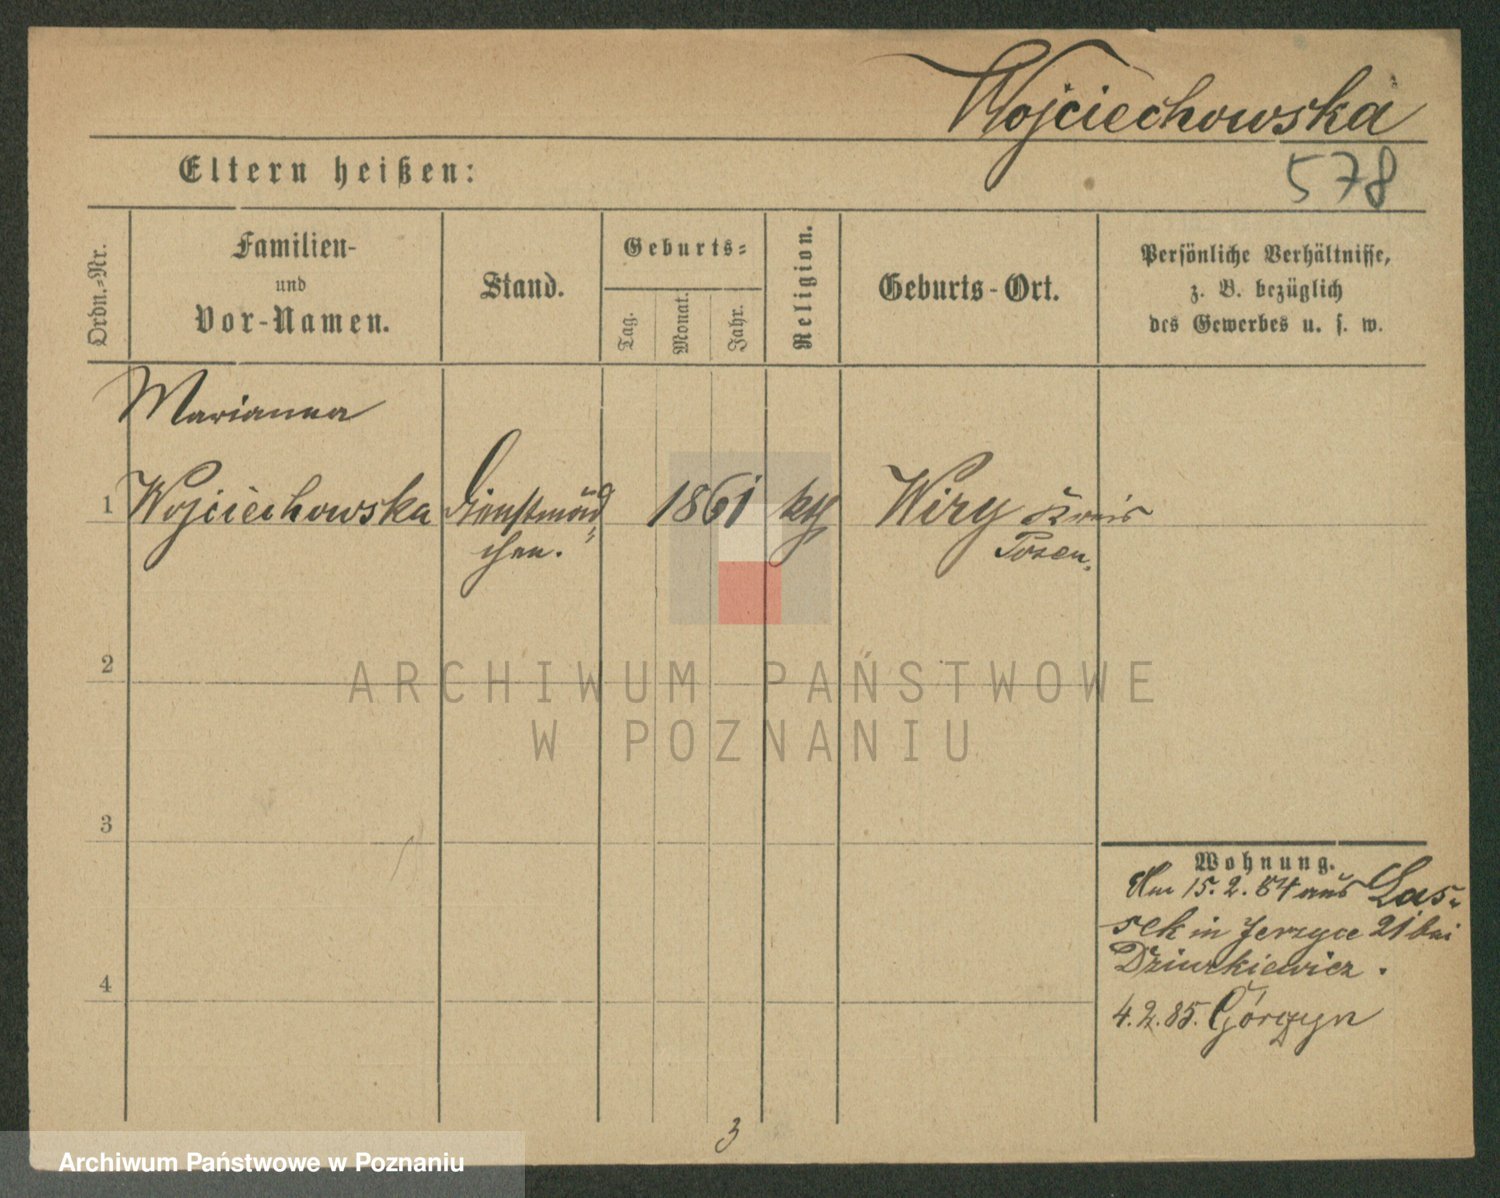 Wojciechowska
Eltern heißen:
578
Ordn.-Nr.
Familien-
und
Vor-Namen.
Stand.
Geburts-
Tag.
Monat.
Jahr.
Religion.
Geburts-Ort.
Persönliche Verhältnisse,
z. B. bezüglich
des Gewerbes u. s. w.
Marianna
1 Wojciechowska Dienstmäd- 1861 kth Wiry Kreis
chen. Posen,
2
ARCHIWUM PAŃSTWOWE
W POZNANIU
3
Wohnung.
Am 15.2.84 aus Las-
sek in Jerzyce 21 bei
Dziurkiewicz.
4
4.2.85. Górczyn
3
Archiwum Państwowe w Poznaniu